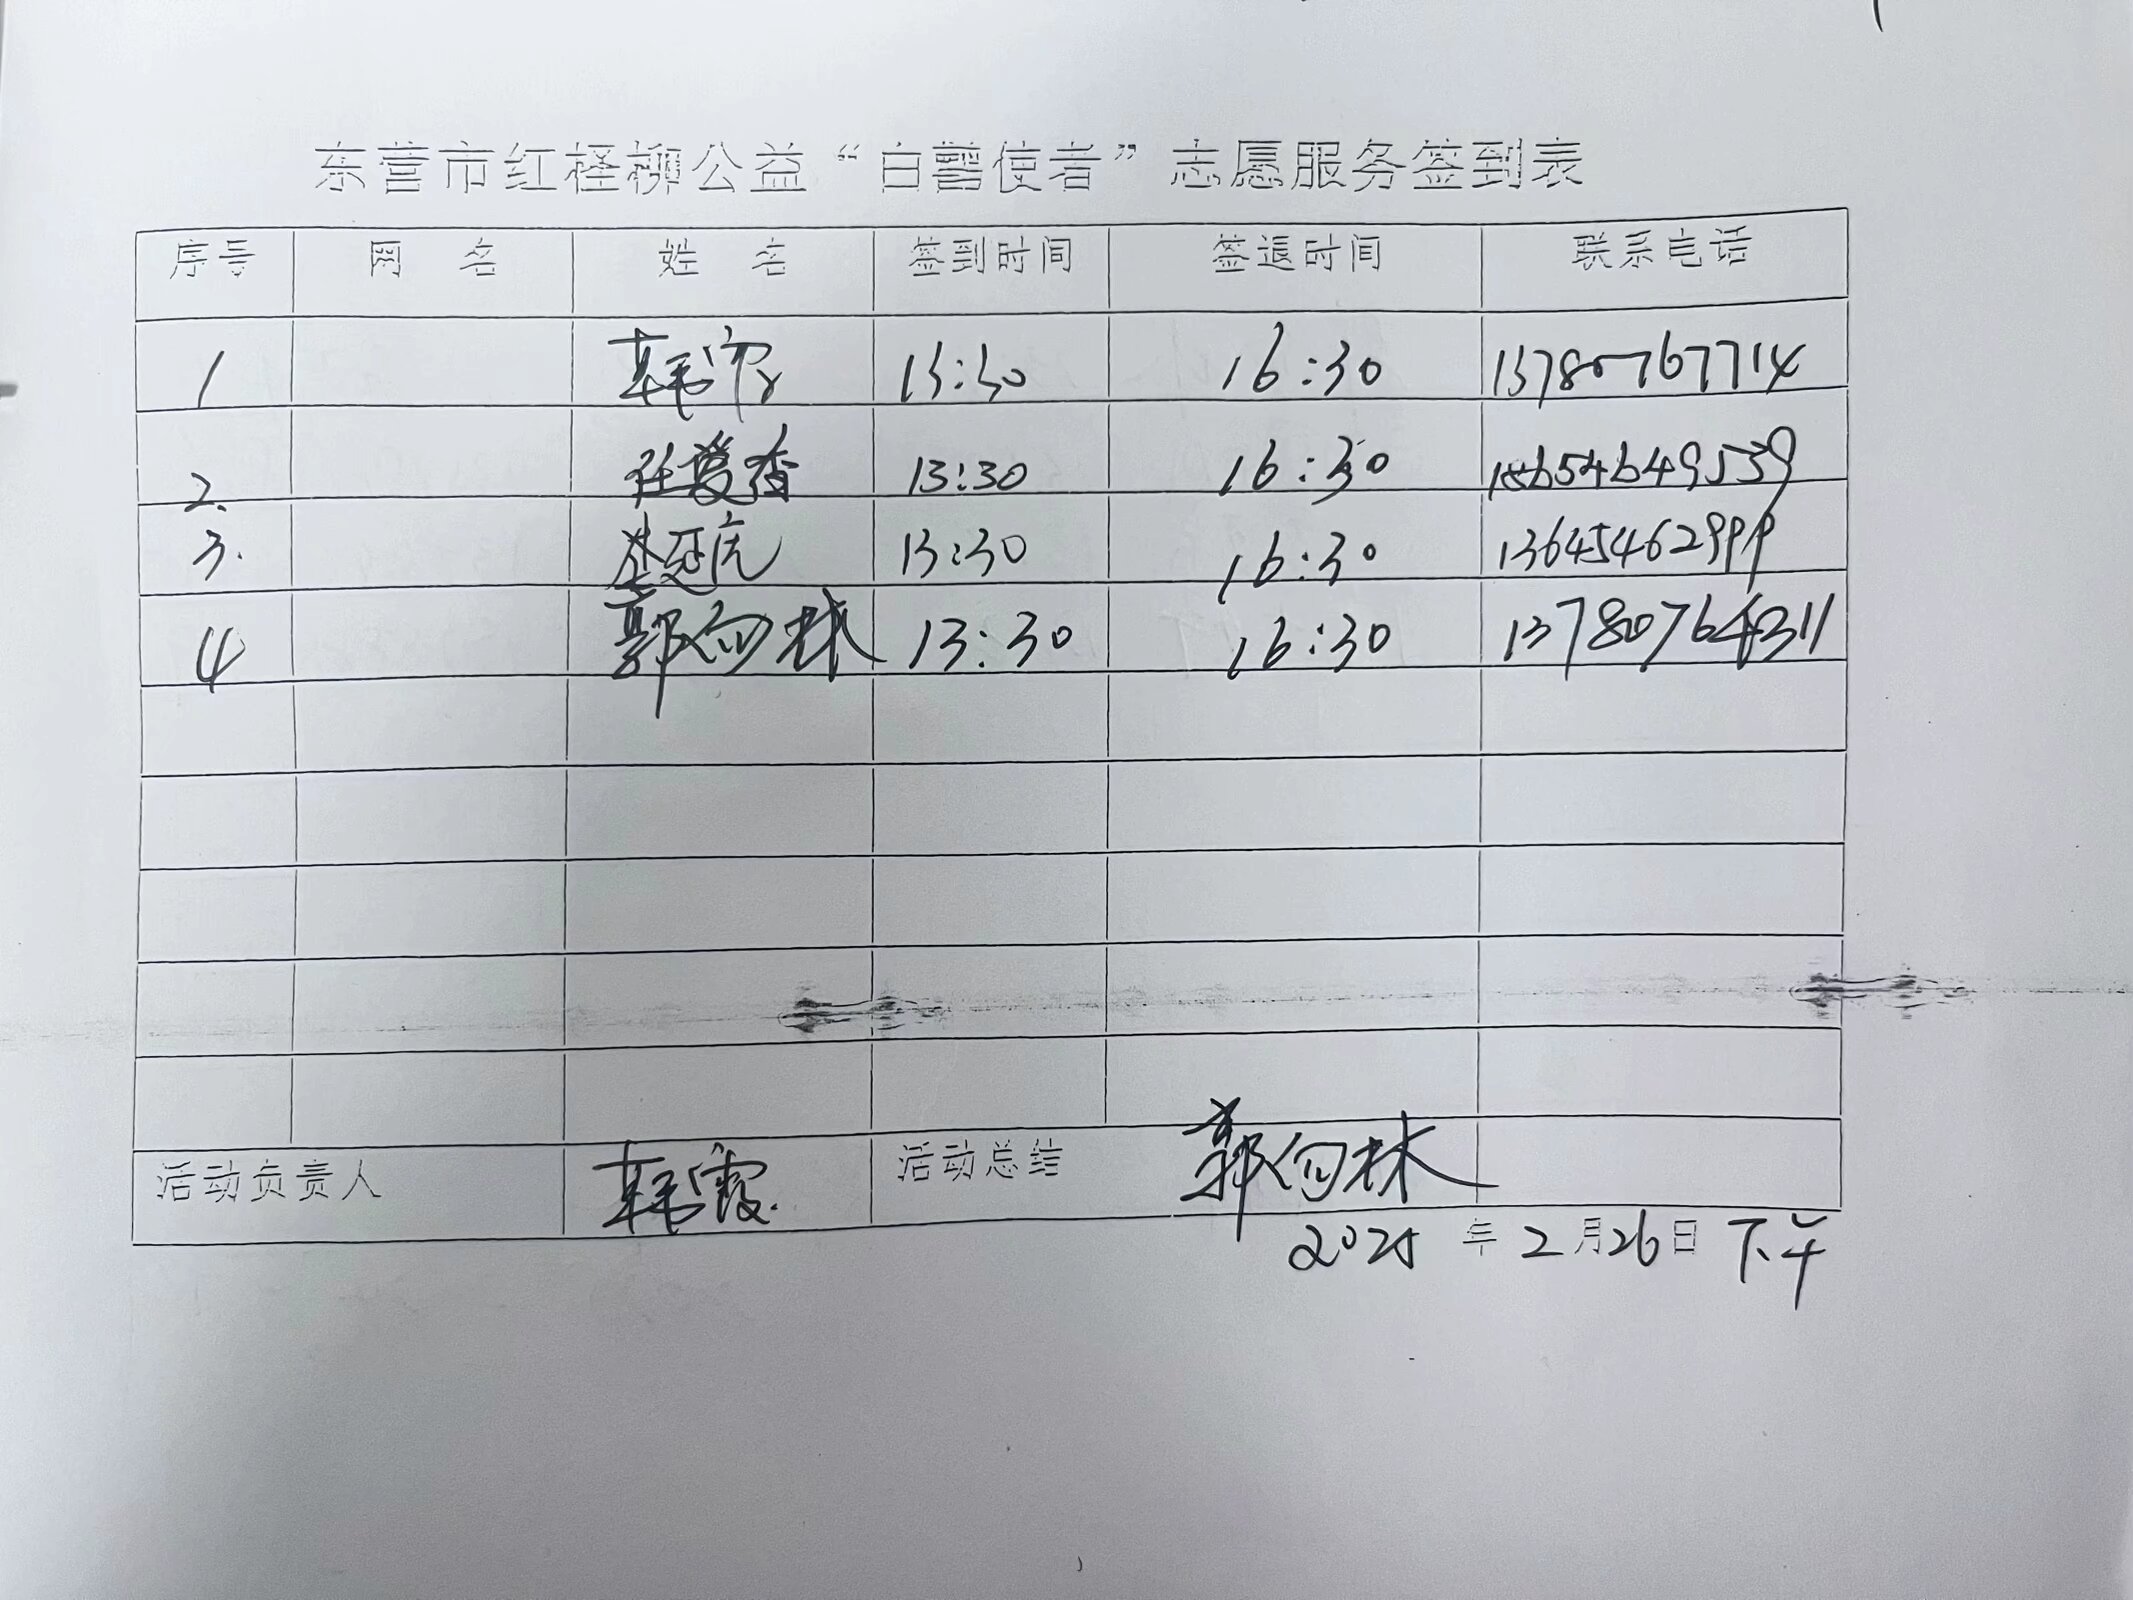 东营市红柽柳公益“白鹭使者”志愿服务签到表
序号 网 名 姓 名 签到时间 签退时间 联系电话
1 韩霞 13:30 16:30 13780767714
2. 任爱香 13:30 16:30 18654649539
3. 延虎 13:30 16:30 13645462999
4 郭向林 13:30 16:30 13780764311
活动负责人 韩霞. 活动总结 郭向林
2025 年 2 月 26 日 下午